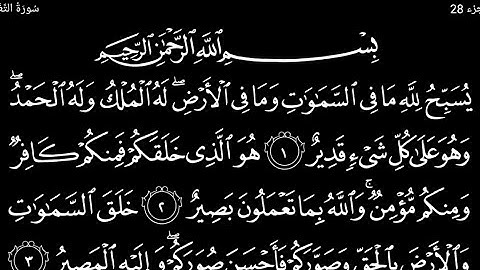 جزء 28 سُورَةُ التَّغَ
بِسْمِ ٱللَّهِ ٱلرَّحْمَٰنِ ٱلرَّحِيمِ
يُسَبِّحُ لِلَّهِ مَا فِى ٱلسَّمَٰوَٰتِ وَمَا فِى ٱلْأَرْضِ ۖ لَهُ ٱلْمُلْكُ وَلَهُ ٱلْحَمْدُ ۖ
وَهُوَ عَلَىٰ كُلِّ شَىْءٍ قَدِيرٌ ١ هُوَ ٱلَّذِى خَلَقَكُمْ فَمِنكُمْ كَافِرٌ
وَمِنكُم مُّؤْمِنٌ ۚ وَٱللَّهُ بِمَا تَعْمَلُونَ بَصِيرٌ ٢ خَلَقَ ٱلسَّمَٰوَٰتِ
وَٱلْأَرْضَ بِٱلْحَقِّ وَصَوَّرَكُمْ فَأَحْسَنَ صُوَرَكُمْ ۖ وَإِلَيْهِ ٱلْمَصِيرُ ٣